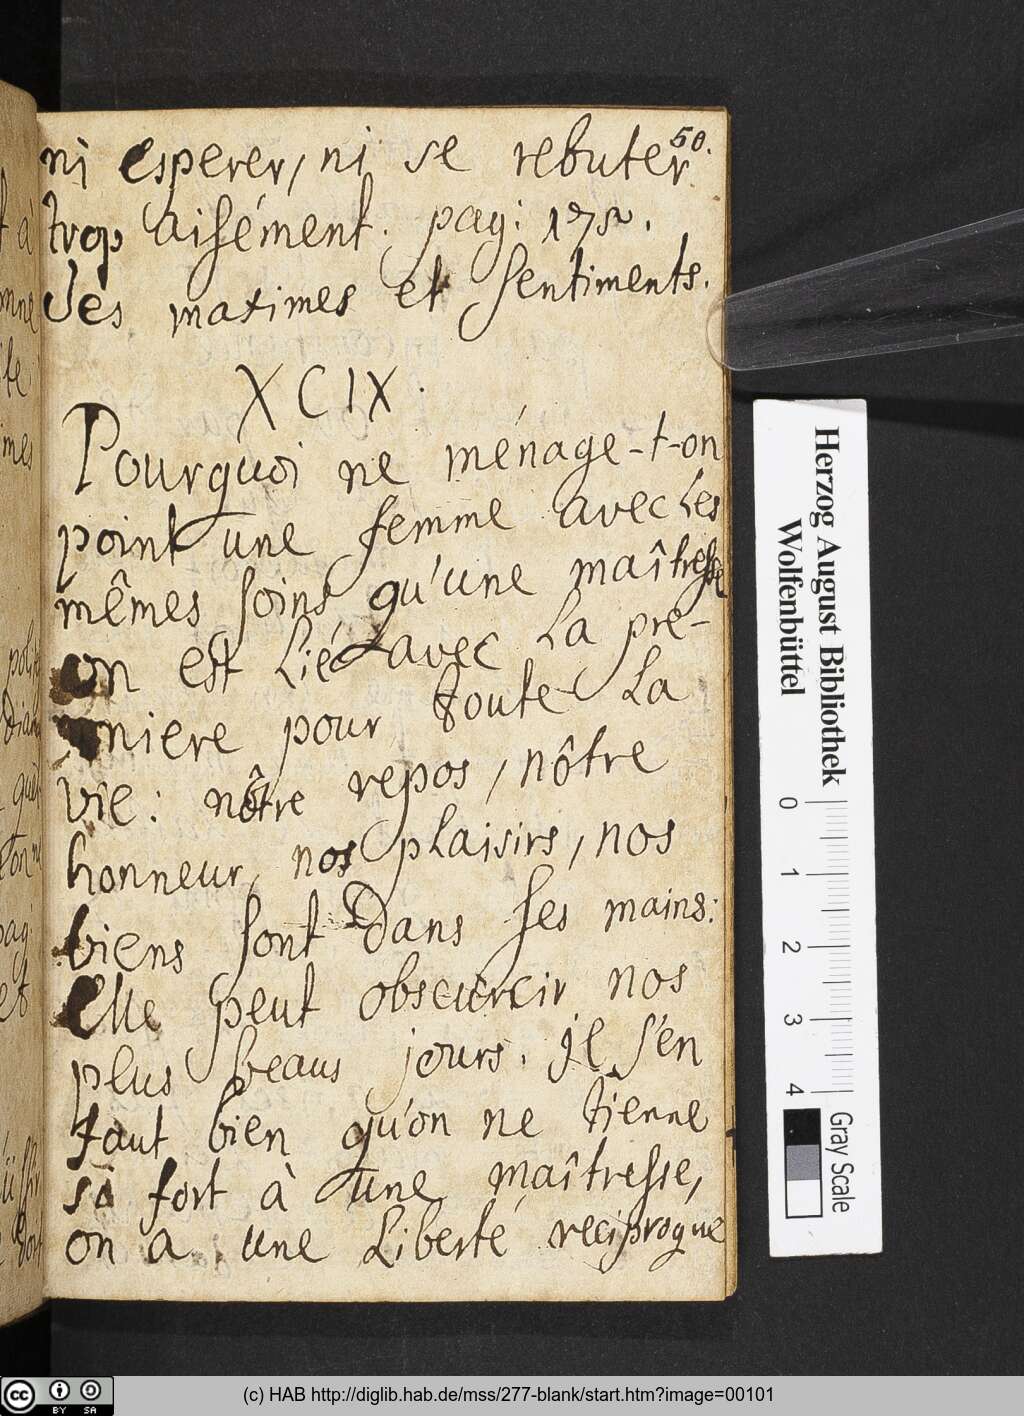 50.
ni esperer, ni se rebuter
trop aisément. pag: 172.
Des maximes et sentiments.
XCIX.
Pourquoi ne ménage-t-on
point une femme avec les
mêmes soins qu'une maîtresse
on est lié avec la pre-
miere pour toute la
vie: nôtre repos, nôtre
honneur, nos plaisirs, nos
biens sont dans ses mains:
Elle peut obscurcir nos
plus beaus jours. il s'en
faut bien qu'on ne tienne
si fort à une maîtresse,
on a une liberté reciproque
Herzog August Bibliothek
Wolfenbüttel
0 1 2 3 4
Gray Scale
(c) HAB http://diglib.hab.de/mss/277-blank/start.htm?image=00101
cc BY SA